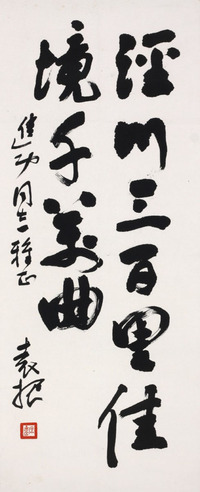 泾川三百里佳
境千万曲
进功同志雅正
袁振